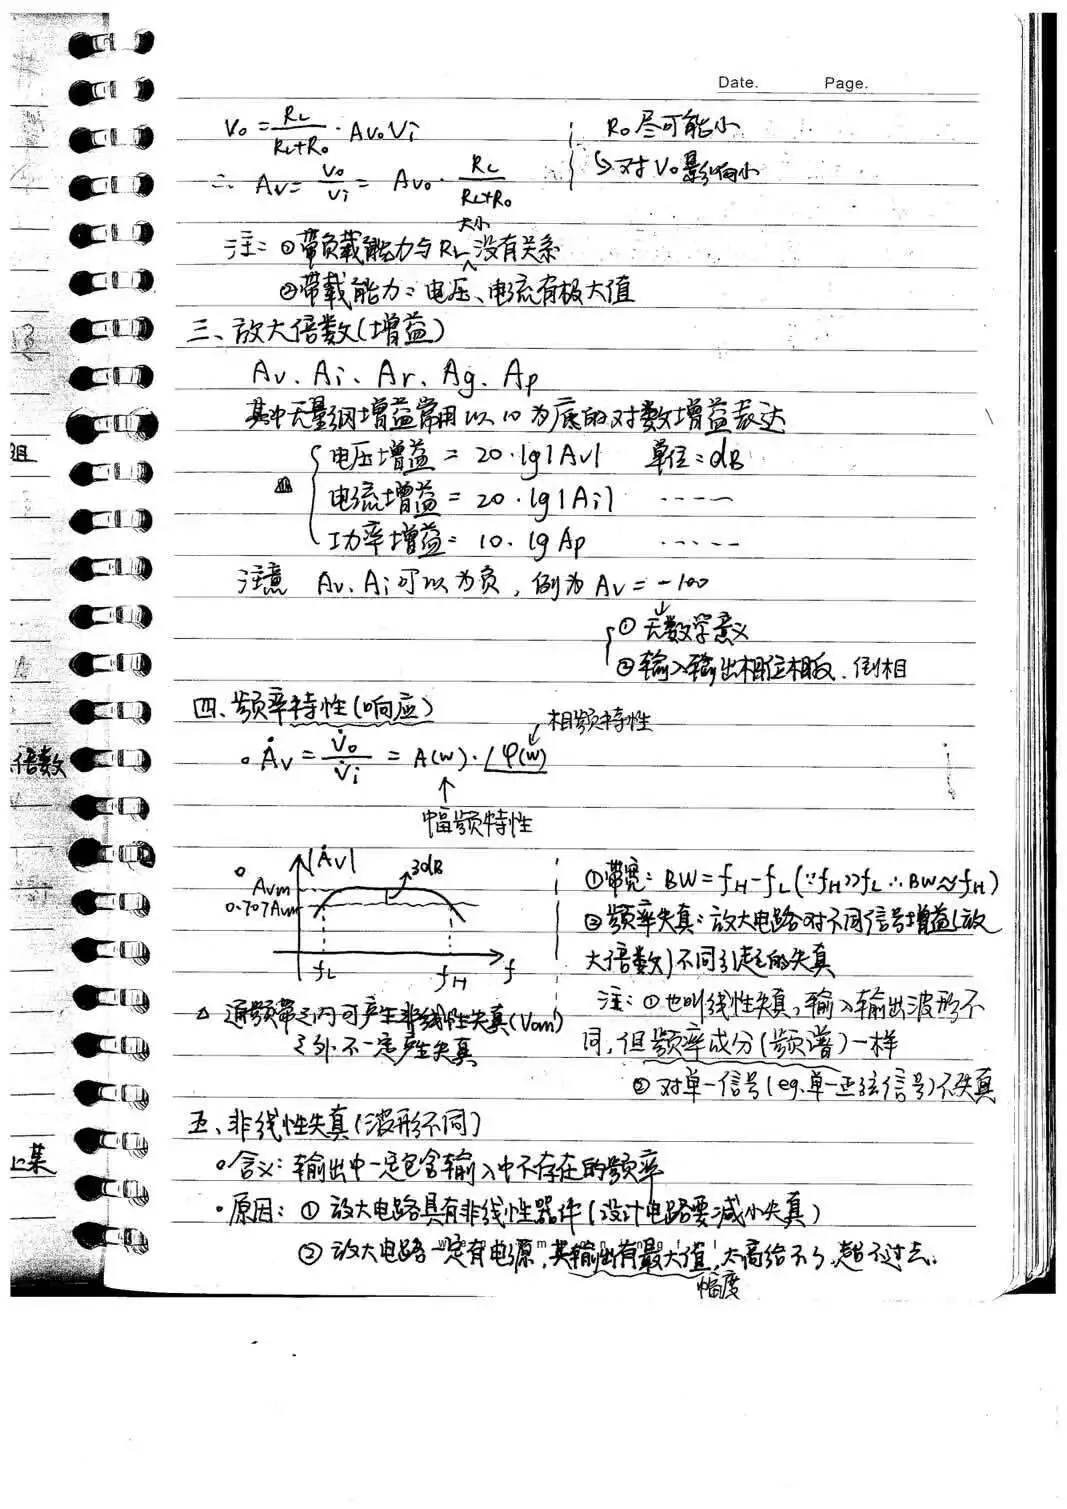 Date. Page.
Vo = RL/(RL+Ro) · Avo Vi
Ro 尽可能小
∴ Av = Vo/Vi = Avo · RL/(RL+Ro)
↳ 对 Vo 影响小
大小
注: ①带负载能力与 RL 没有关系
②带载能力: 电压、电流有极大值
三、放大倍数(增益)
Av、Ai、Ar、Ag、Ap
其中无量纲增益常用以10为底的对数增益表达
组
电压增益 = 20·lg|Av| 单位: dB
电流增益 = 20·lg|Ai| -----
功率增益 = 10·lg Ap -----
注意 Av、Ai可以为负, 例为 Av = -100
① 无数学意义
② 输入输出相位相反、倒相
四、频率特性(响应)
相频特性
倍数
。Ȧv = V̇o/V̇i = A(w)·∠φ(w)
幅频特性
|Ȧv|
3dB
Avm
0.707Avm
fL fH f
①带宽: BW = fH - fL (∵fH>>fL ∴BW≈fH)
②频率失真: 放大电路对不同信号增益(放
大倍数)不同引起的失真
△ 通频带之内可产生非线性失真(Vom)
之外不一定产生失真
注: ①也叫线性失真, 输入输出波形不
同, 但频率成分(频谱)一样
② 对单一信号(eg.单一正弦信号)不失真
五、非线性失真(波形不同)
上集
。含义: 输出中一定包含输入中不存在的频率
·原因: ① 放大电路具有非线性器件(设计电路要减小失真)
② 放大电路一定有电源, 其输出有最大值, 太高给不了, 超不过去.
幅度